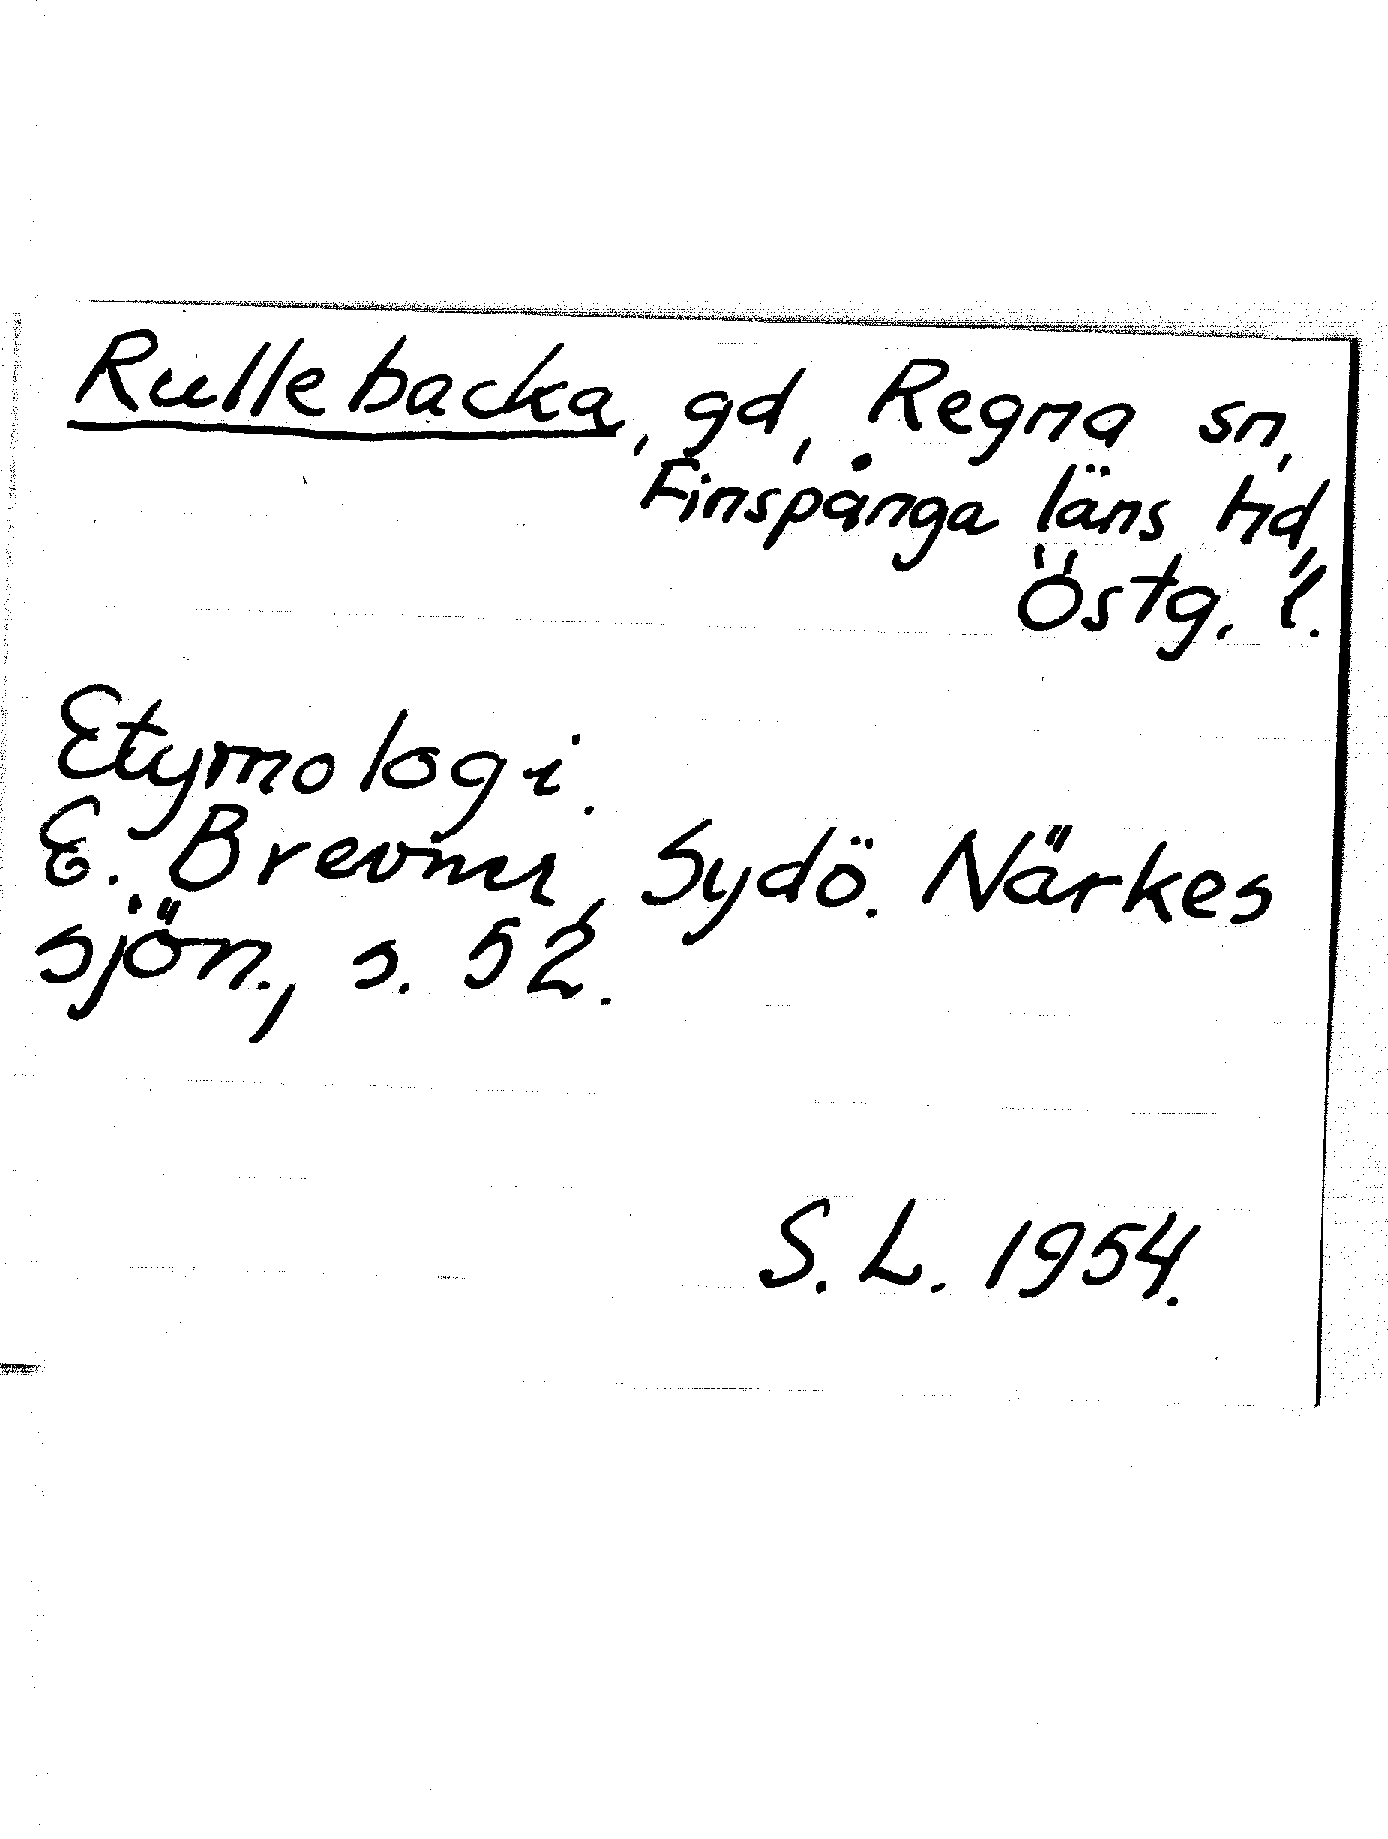 Rullebacka, gd, Regna sn,
Finspånga läns hd,
Östg. l.
Etymologi.
E. Brevner, Sydö. Närkes
sjön., s. 52.
S. L. 1954.